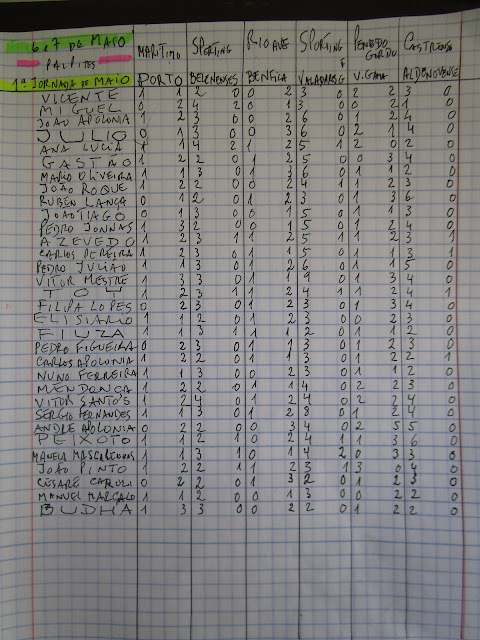 6 e 7 DE MAIO MARITIMO SPORTING RIO AVE SPORTING F PENEDO GORDO CASTRENSE
PALPITES
1ª JORNADA DE MAIO PORTO BELENENSES BENFICA VALADARES G V. GAMA ALDENOVENSE
VICENTE 1 1 2 0 0 2 3 0 2 2 3 0
MIGUEL 0 2 4 2 0 1 3 0 0 2 1 0
JOÃO APOLONIA 1 2 3 0 0 2 6 0 1 2 4 0
JULIO 0 1 3 0 0 3 6 0 2 1 4 0
ANA LUCIA 1 1 4 2 1 2 5 1 2 0 2 0
GASTÃO 1 2 2 0 1 2 5 0 0 3 4 0
MARIO OLIVEIRA 1 1 3 0 1 3 6 0 1 1 2 0
JOÃO ROQUE 1 2 2 0 0 2 4 1 1 2 3 0
RUBEN LANÇA 0 1 2 0 1 2 3 0 1 3 6 0
JOÃO TIAGO 0 1 3 0 0 1 5 0 1 1 3 0
PEDRO JONNAS 1 3 2 0 0 1 5 0 1 2 4 0
AZEVEDO 1 2 3 1 1 2 5 1 1 2 3 1
CARLOS PEREIRA 1 2 3 0 1 1 5 0 1 1 3 1
PEDRO JULIÃO 1 1 3 0 1 2 6 0 1 1 5 0
VITOR MESTRE 1 3 3 0 1 1 9 0 1 3 4 0
TOY 1 2 3 1 1 2 4 1 1 2 4 1
FILIPA LOPES 0 2 3 0 1 2 3 0 1 3 4 0
ELISIARIO 1 1 2 0 1 2 3 0 0 2 3 0
FIUZA 1 1 3 1 1 1 2 0 1 1 2 0
PEDRO FIGUEIRA 0 2 3 0 1 1 3 0 1 2 3 0
CARLOS APOLONIA 1 2 2 0 1 1 3 0 1 2 2 1
NUNO FERREIRA 1 1 3 0 0 2 3 0 1 1 2 0
MENDONÇA 1 2 2 0 1 1 4 0 2 2 3 0
VITOR SANTOS 1 2 4 0 1 2 4 0 2 2 4 0
SERGIO FERNANDES 1 1 3 0 1 2 8 0 1 2 4 0
ANDRE APOLONIA 0 2 2 0 0 3 4 0 2 5 5 0
PEIXOTO 1 1 2 1 0 2 4 1 1 3 6 0
MANUEL MASCARENHAS 1 1 3 1 0 1 4 2 0 3 3 0
JOÃO PINTO 1 2 2 1 1 2 3 1 3 0 4 0
CESARE CAROLI 0 2 2 0 1 3 2 0 1 2 3 0
MANUEL MARÇALO 1 1 2 0 0 1 3 0 0 2 2 0
BUDHA 1 3 3 0 0 2 2 0 1 2 2 0